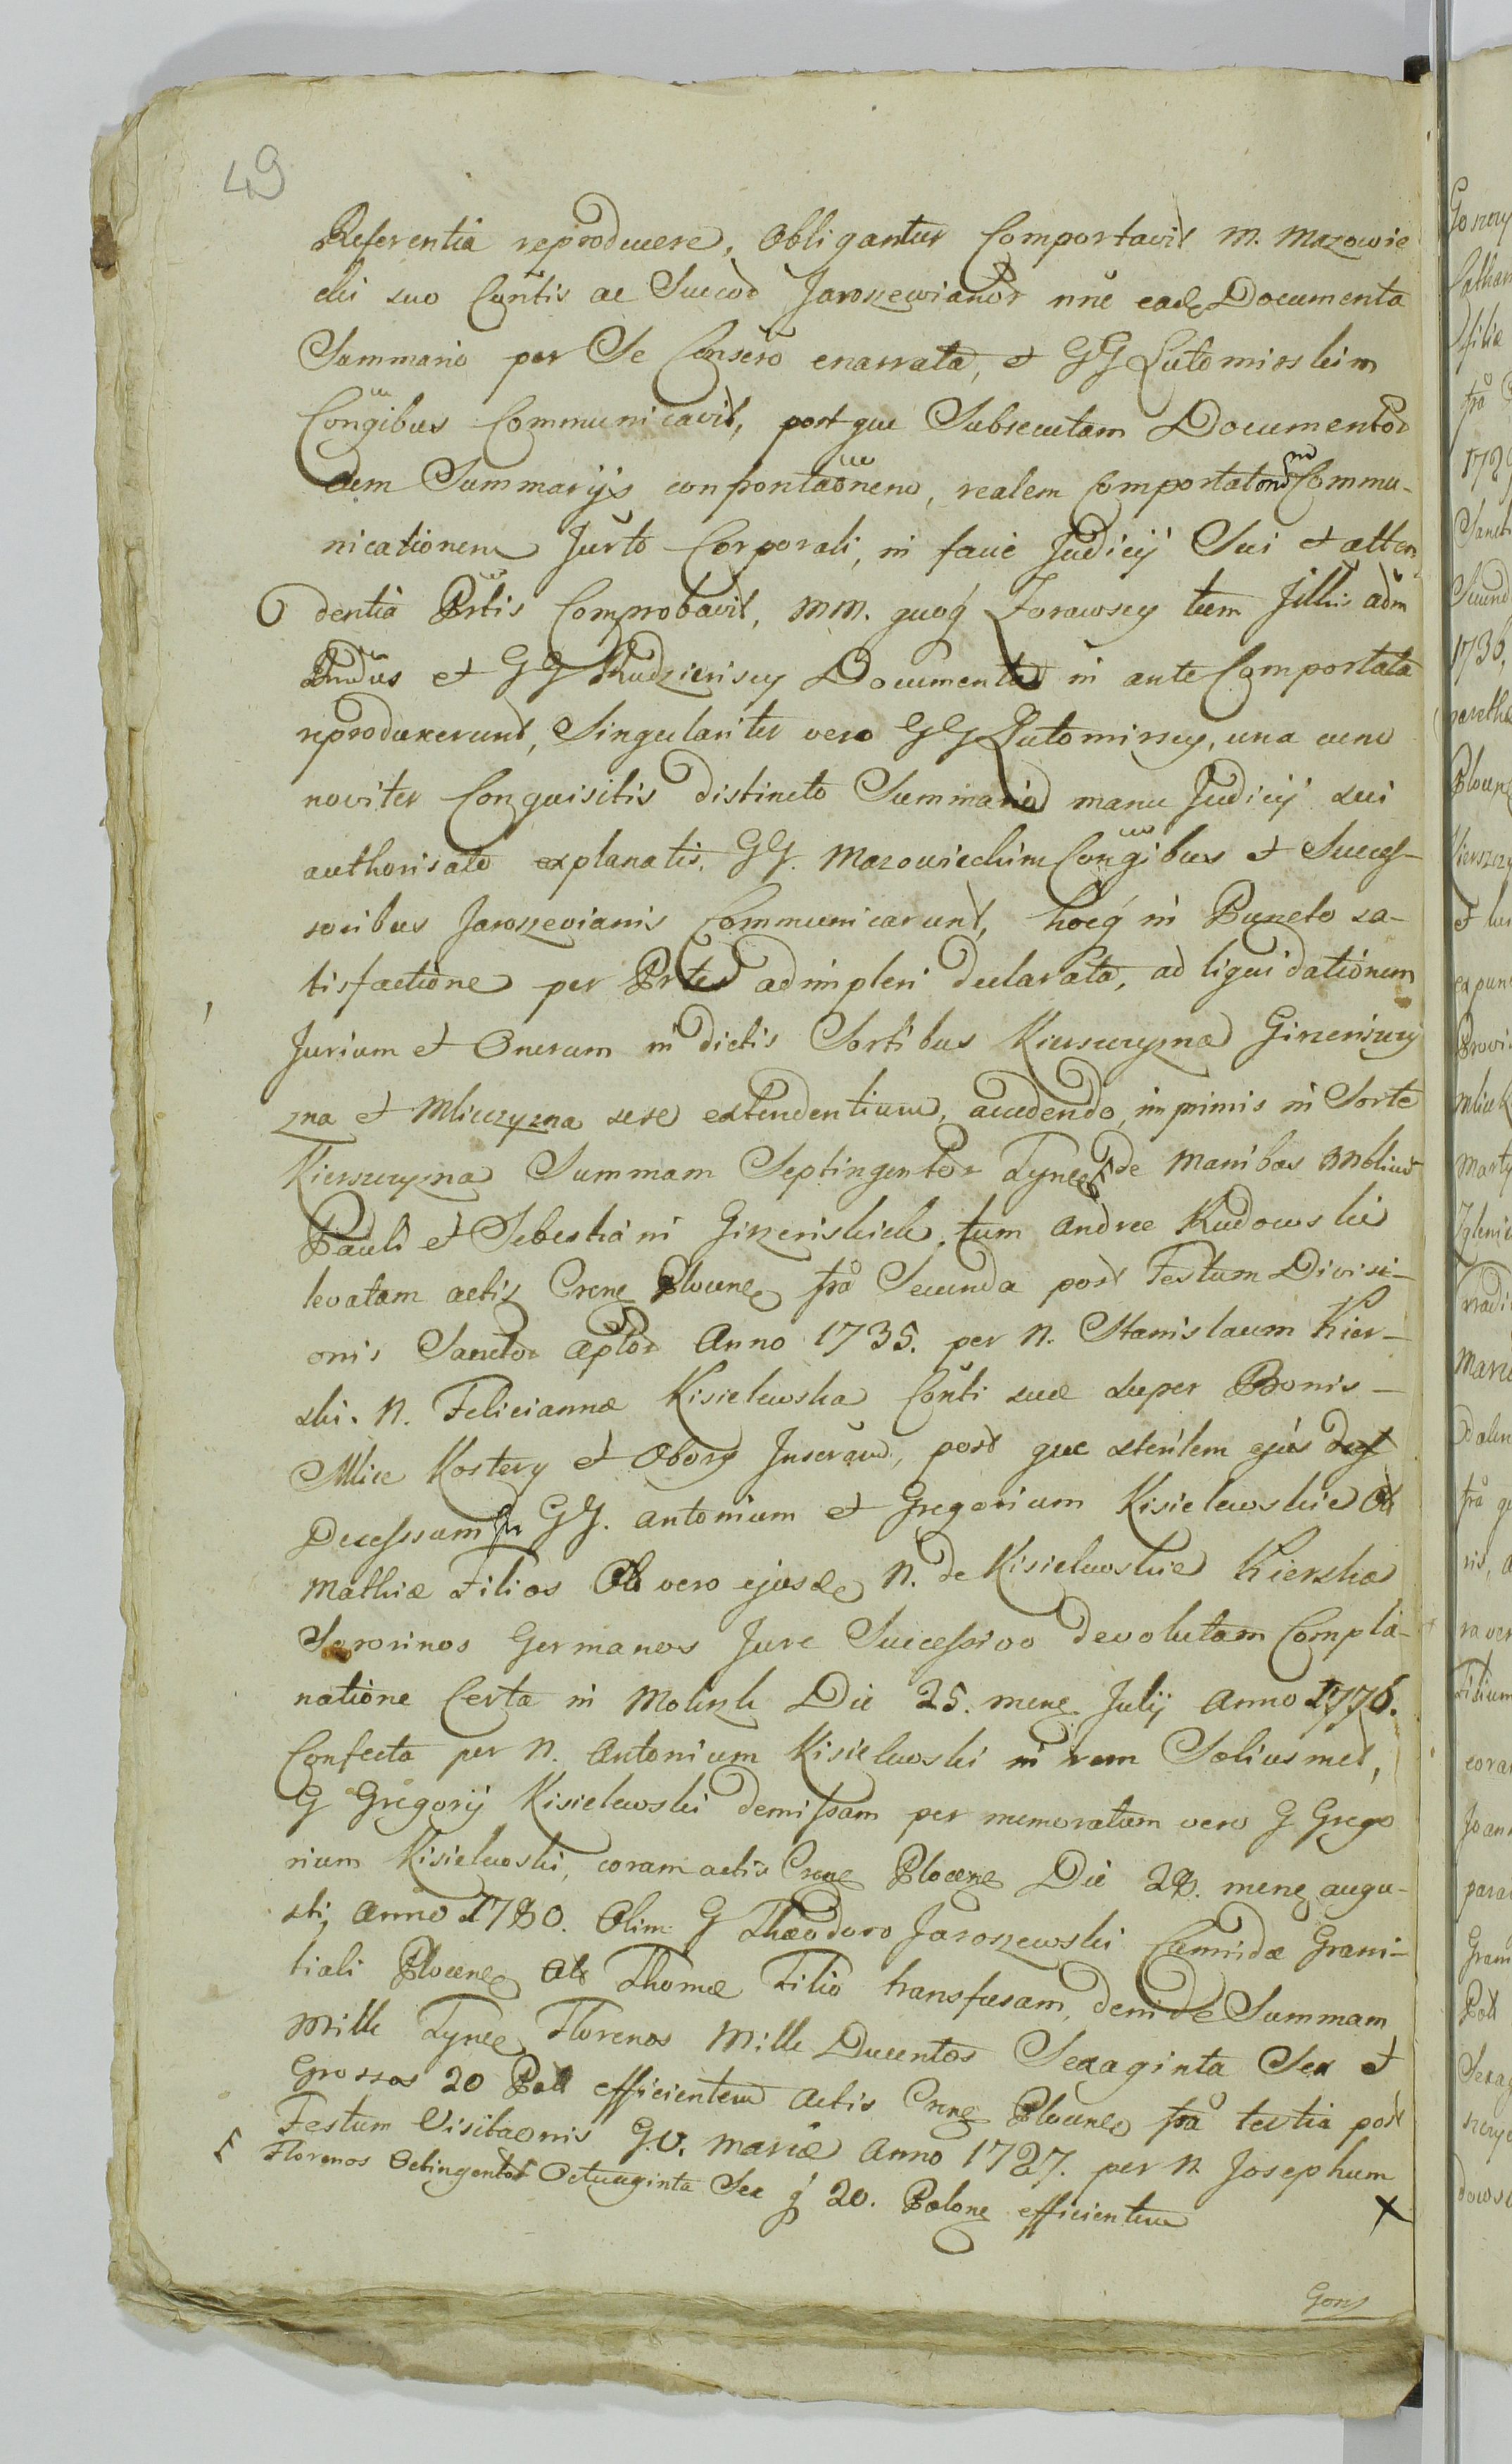 49
Referentia reproducere, Obligantur Comportavit M. Mazowie
cki suo Coñtis ac Succor̃ Jaroszewianor̃ nñe eadē Documenta
Summario per Se Consero enarrata, et GG Lutomirskim
Coñgibus Communicavit, post que Subsecutam Documentor̃
cum Summarijs confrontãonem, realem Comportatonem Commu-
nicationem Jurto Corporali, in facie Judicij Sui et atten-
dentia Prtis Comprobavit, MM. quoq́ Zorawscy tum Jllris adm
Rndus et GG Rudzienscy Documenta in ante Comportata
reproduxerunt, Singulariter vero GG Lutomirscy, una cum
noviter Conquisitis distincto Summario manu Judicij sui
authorisato explanatis, GG. Mazowieckim Coñgibus et Succes-
soribus Jaroszevianis Communicarunt, hocq́ in Puncto sa-
tisfactione per Prtes adimpleri declarata, ad liquidationem
Jurium et Onerum in dictis Sortibus Kierszczyzna Girzenszczy
zna et Mliczyzna sese extendentium, accedendo, in primis in Sorte
Kierszczyzna Summam Septingentor̃ Tynf de Manibus Nobilium
Pauli et Sebestiani Girzeńskich, tum Andree Rudowski
levatam actis Crene Plocene fra Secunda post Festum Divisi-
onis Sanctor̃ Aptor̃ Anno 1735. per N. Stanislaum Kier-
ski. N. Felicianna Kisielewska Coñti suæ super Bonis
Mlice Kostery et Obory Inscram, post que sterilem ejus
Decessum in GG. Antonium et Gregorium Kisielewskie Ol
Mathiæ Filios Ol vero ejusdē N. de Kisielewskie Kierska
Sororinos Germanos Jure Successivo devolutam Compla-
natione Certa in Die 25. mene Julij Anno 1776.
Confecta per N. Antonium Kisielewski in rem Soliusmet,
G Gregorij Kisielewski demissam per memoratum vero G Grego
rium Kisielewski, coram actis Crene Plocene Die 28. mene augu-
sti, Anno 1780. Olim G Theodoro Jaroszewski Camrida Grani-
tiali Plocene Ol Thomæ Filio transfusam, deinde Summam
Mille Tynf Florenos Mille Ducentos Sexaginta Sex et
Grossos 20 Poll efficientem Actis Crene Plocene fra tertia post
Festum Visitaonis G.V. Mariæ Anno 1727. per N Josephum
Florenos Octingentos Octuaginta Sex g 20. Polone efficientem
Gon